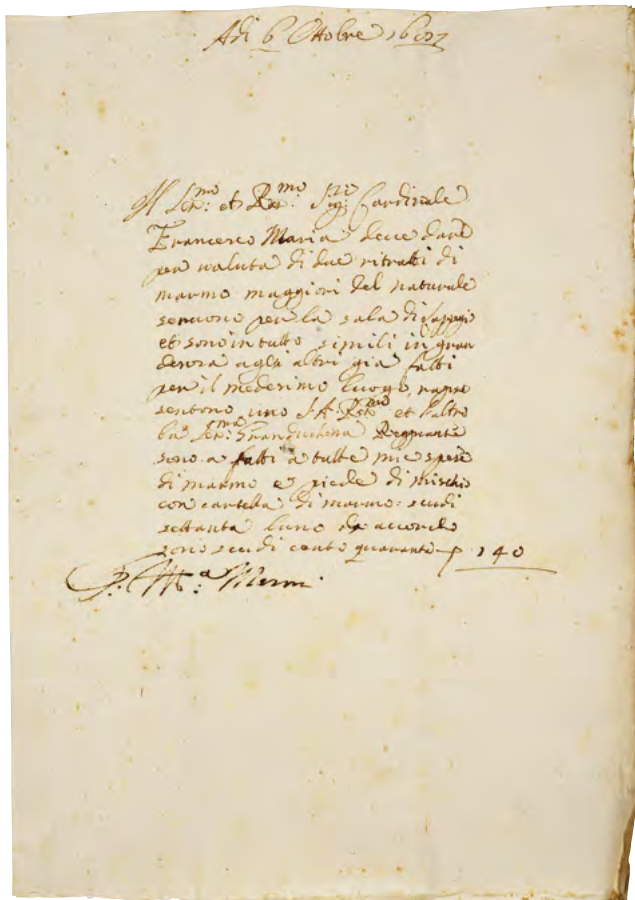 Adi 6 Ottobre 1697
Il Ser:mo et Re:mo Sig:re Cardinale
Francesco Maria deve dare
per valuta di due ritratti di
marmo maggiori del naturale
seruono per la sala di Lappegi
et sono in tutto simili in gran
deza agli altri gia fatti
per il medesimo luogo, rapre
sentono uno S.A. Re:mo et l'altro
la Ser:ma Granduchesa Regnante
sono a fatti a tutte mie spese
di marmo e piede di mischio
con cartella di marmo: scudi
settanta l'uno da accordo
sono scudi cento quaranta p 140